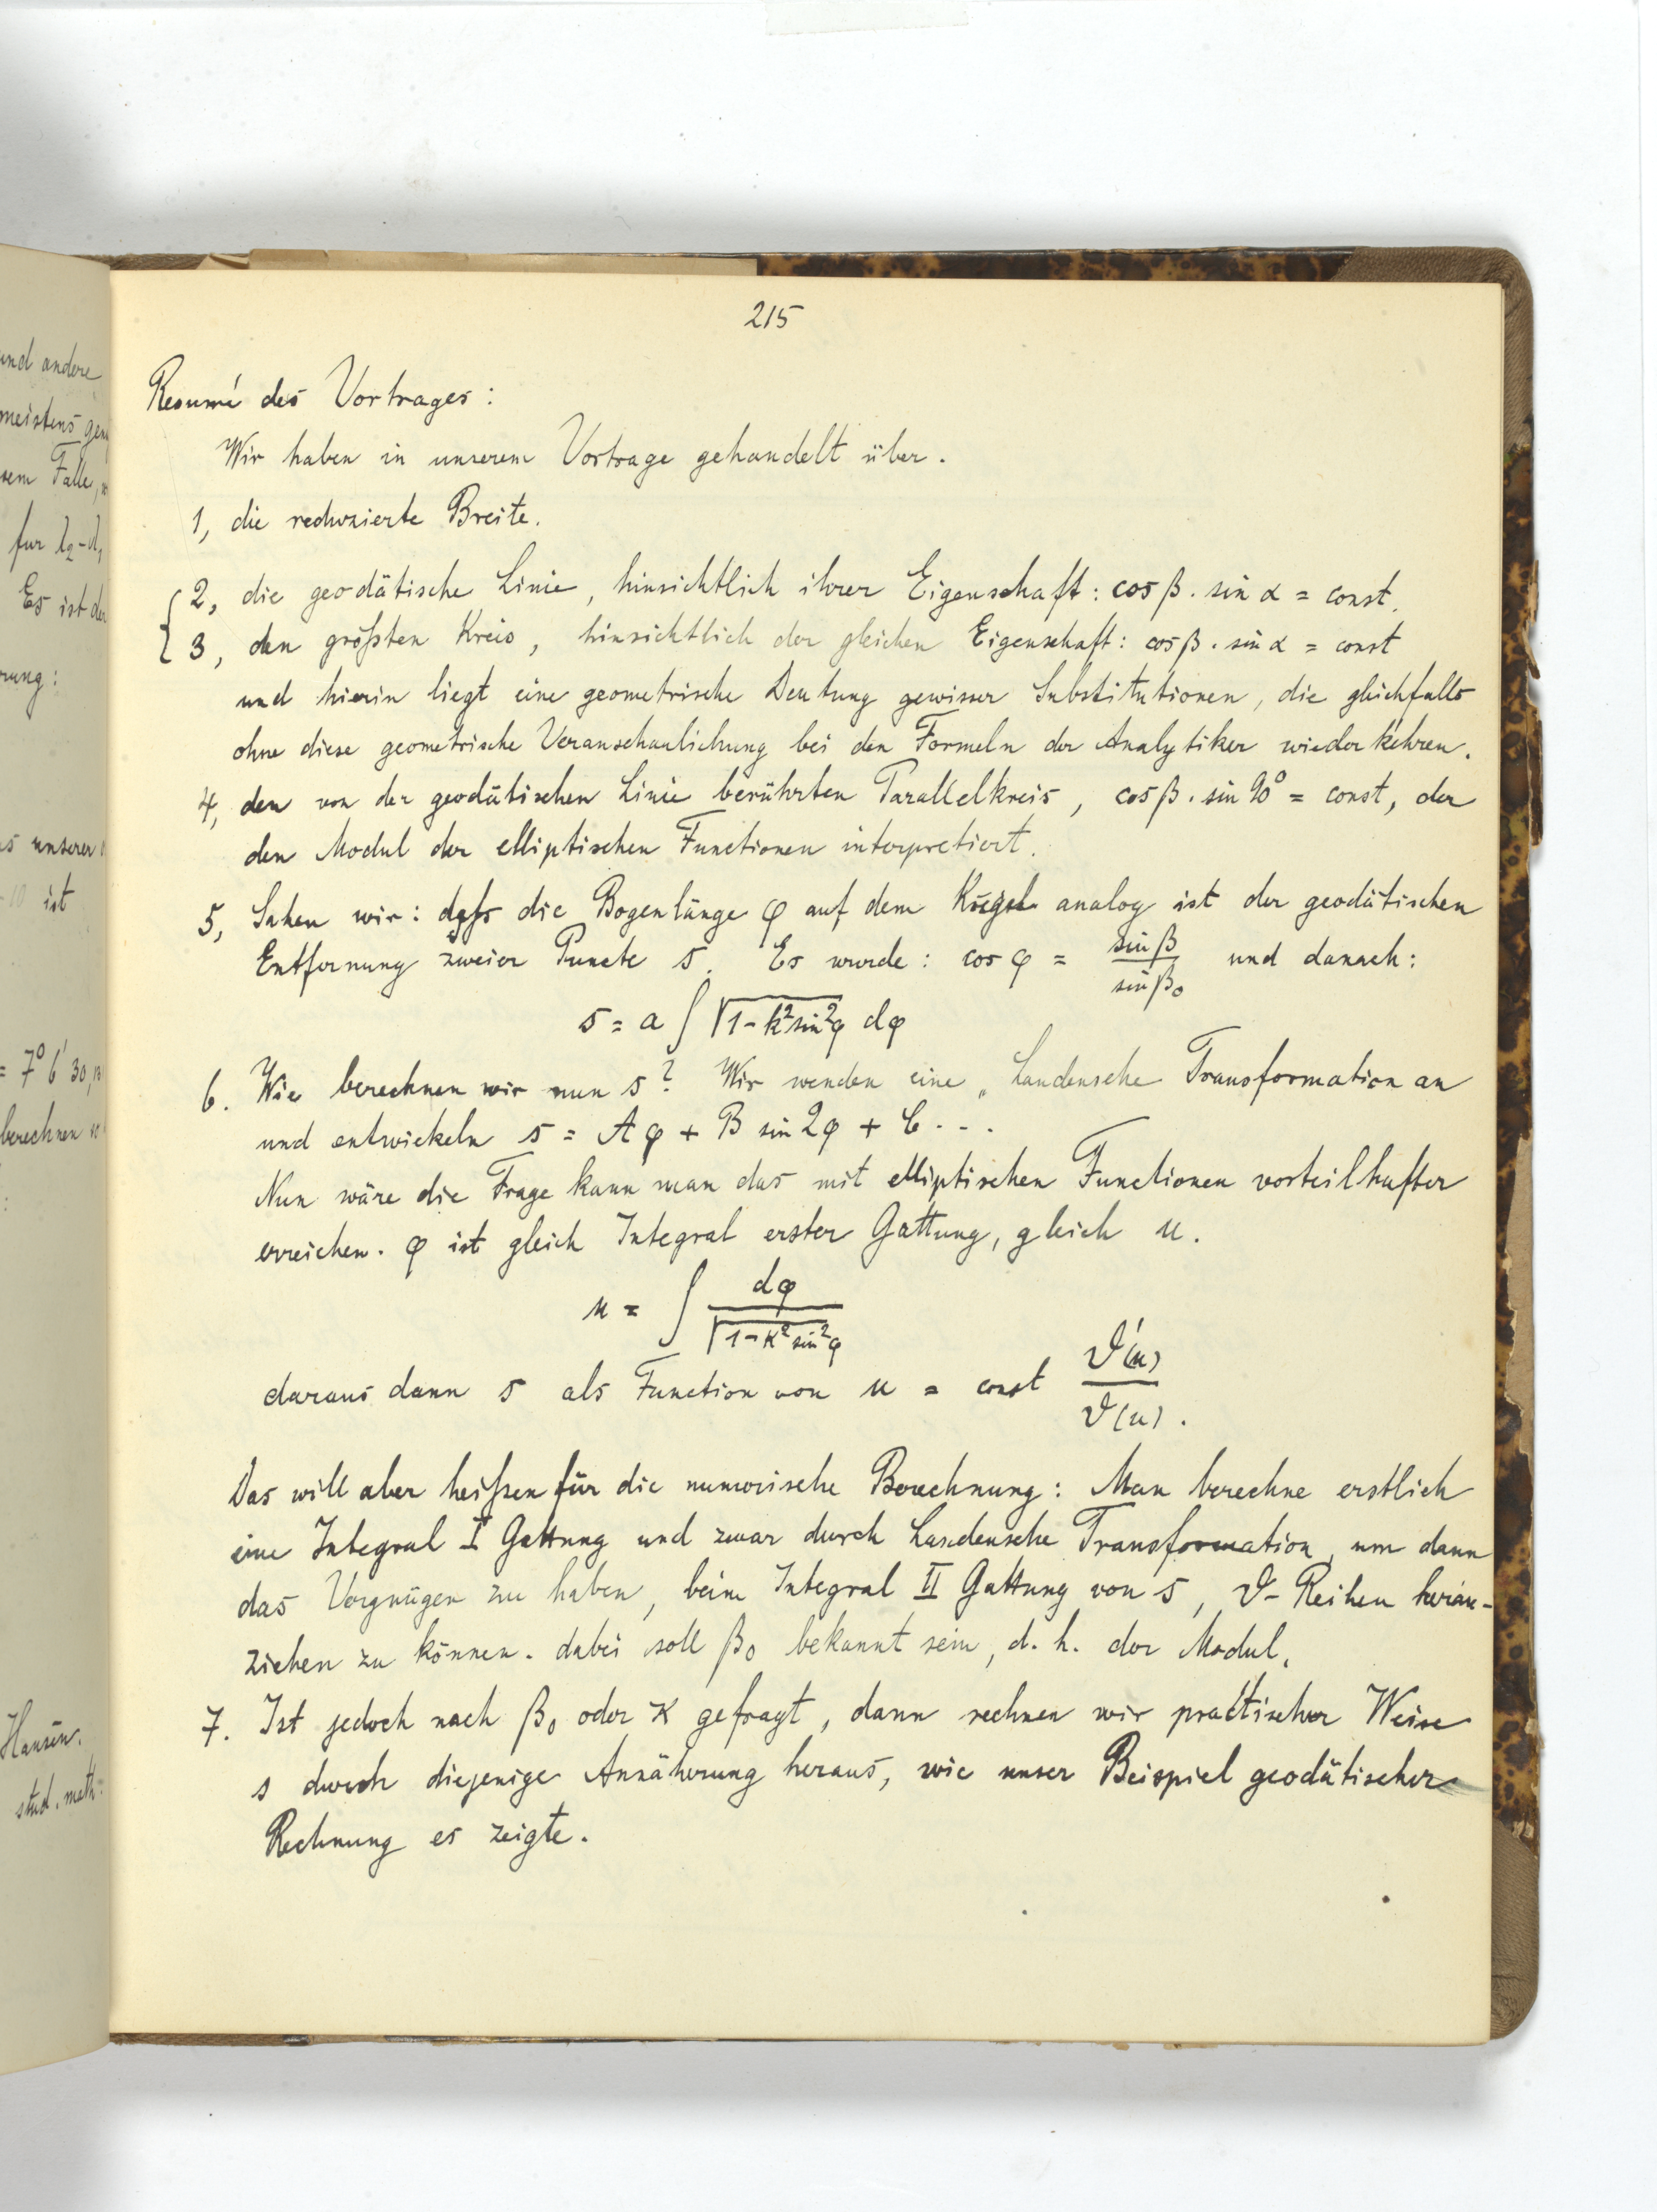 215
Resumé des Vortrages:
Wir haben in unserem Vortrage gehandelt über.
1, die reduzierte Breite.
2, die geodätische Linie, hinsichtlich ihrer Eigenschaft: cos β . sin α = const.
3, den größten Kreis, hinsichtlich der gleichen Eigenschaft: cos β . sin α = const
und hierin liegt eine geometrische Deutung gewisser Substitutionen, die gleichfalls
ohne diese geometrische Veranschaulichung bei den Formeln der Analytiker wiederkehren.
4, den von der geodätischen Linie berührten Parallelkreis, cos β . sin 90° = const, der
den Modul der elliptischen Functionen interpretiert.
5, Sahen wir: daß die Bogenlänge φ auf dem Kugel analog ist der geodätischen
Entfernung zweier Puncte s. Es wurde: cos φ = sin β / sin β₀ und danach:
s = a ∫ √1 - k² sin² φ dφ
6. Wie berechnen wir nun s? Wir wenden eine „Landensche Transformation an
und entwickeln s = A φ + B sin 2φ + C . . .
Nun wäre die Frage kann man das mit elliptischen Functionen vorteilhafter
erreichen. φ ist gleich Integral erster Gattung, gleich u.
u = ∫ dφ / √1 - k² sin² φ
daraus dann s als Function von u = const ϑ'(u) / ϑ(u).
Das will aber heißen für die numerische Berechnung: Man berechne erstlich
eine Integral I Gattung und zwar durch Landensche Transformation, um dann
das Vergnügen zu haben, beim Integral II Gattung von s, ϑ-Reihen heran-
ziehen zu können. dabei soll β₀ bekannt sein, d. h. der Modul.
7. Ist jedoch nach β₀ oder k gefragt, dann rechnen wir practischer Weise
s durch diejenige Annäherung heraus, wie unser Beispiel geodätischer
Rechnung es zeigte.
und andere
meistens
Falle,
für λ₂-λ₁
Es ist
rung:
unserer
10 ist
= 7° 6' 30,
berechnen
Hansen.
stud. math.